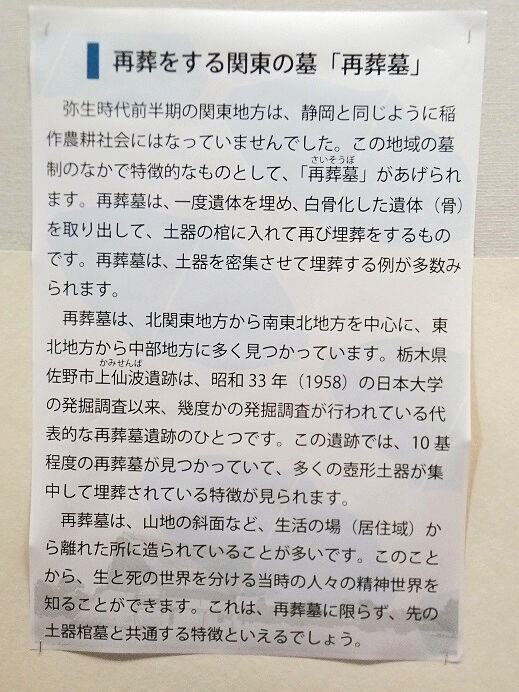 再葬をする関東の墓「再葬墓」
弥生時代前半期の関東地方は、静岡と同じように稲
作農耕社会にはなっていませんでした。この地域の墓
制のなかで特徴的なものとして、「再葬墓」があげられ
さいそうぼ
ます。再葬墓は、一度遺体を埋め、白骨化した遺体（骨）
を取り出して、土器の棺に入れて再び埋葬をするもの
です。再葬墓は、土器を密集させて埋葬する例が多数み
られます。
再葬墓は、北関東地方から南東北地方を中心に、東
北地方から中部地方に多く見つかっています。栃木県
佐野市上仙波遺跡は、昭和 33 年（1958）の日本大学
かみせんば
の発掘調査以来、幾度かの発掘調査が行われている代
表的な再葬墓遺跡のひとつです。この遺跡では、10 基
程度の再葬墓が見つかっていて、多くの壺形土器が集
中して埋葬されている特徴が見られます。
再葬墓は、山地の斜面など、生活の場（居住域）か
ら離れた所に造られていることが多いです。このこと
から、生と死の世界を分ける当時の人々の精神世界を
知ることができます。これは、再葬墓に限らず、先の
土器棺墓と共通する特徴といえるでしょう。